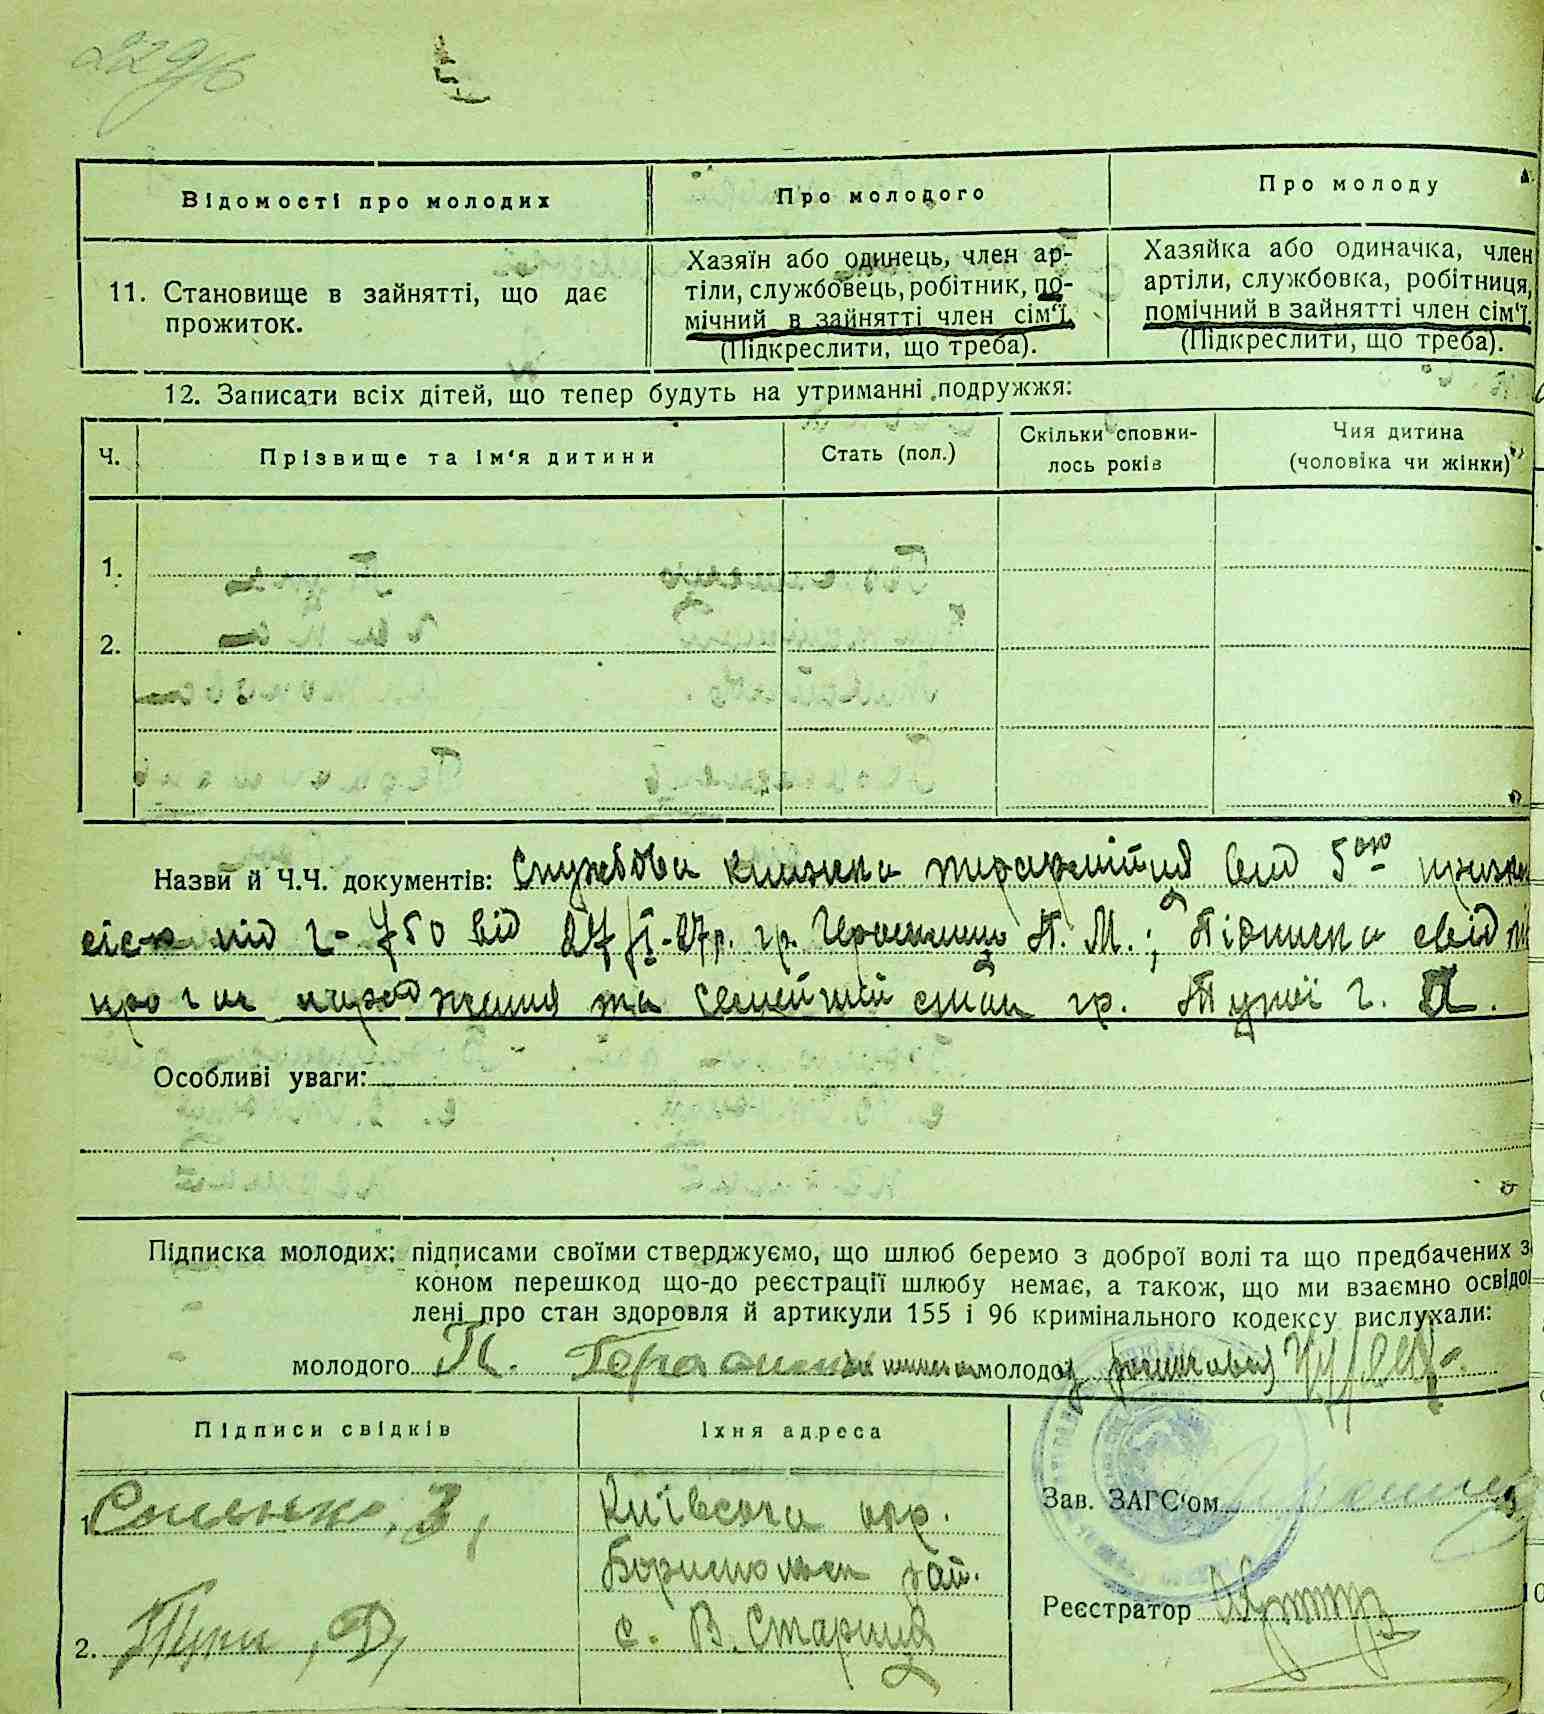 229/б
Відомості про молодих
Про молодого
Про молоду
11. Становище в зайнятті, що дає
прожиток.
Хазяїн або одинець, член ар-
тіли, службовець, робітник, по-
мічний в зайнятті член сім'ї.
(Підкреслити, що треба).
Хазяйка або одиначка, член
артіли, службовка, робітниця,
помічний в зайнятті член сім'ї.
(Підкреслити, що треба).
12. Записати всіх дітей, що тепер будуть на утриманні подружжя:
Ч.
Прізвище та ім'я дитини
Стать (пол.)
Скільки сповни-
лось років
Чия дитина
(чоловіка чи жінки)
1.
2.
Назви й Ч.Ч. документів: Службова книжка від 5ою
під ч- 750 від гр. П. М.; Підписка
про час народження та сімейний стан гр. Тупої Г.
Особливі уваги:
Підписка молодих: підписами своїми стверджуємо, що шлюб беремо з доброї волі та що предбачених за
коном перешкод що-до реєстрації шлюбу немає, а також, що ми взаємно освідо
лені про стан здоровля й артикули 155 і 96 кримінального кодексу вислухали:
молодого П. молодої
Підписи свідків
Їхня адреса
1.
Київська окр.
Бориспольск рай.
2.
с. В. Стариця
Зав. ЗАГС'ом
Реєстратор